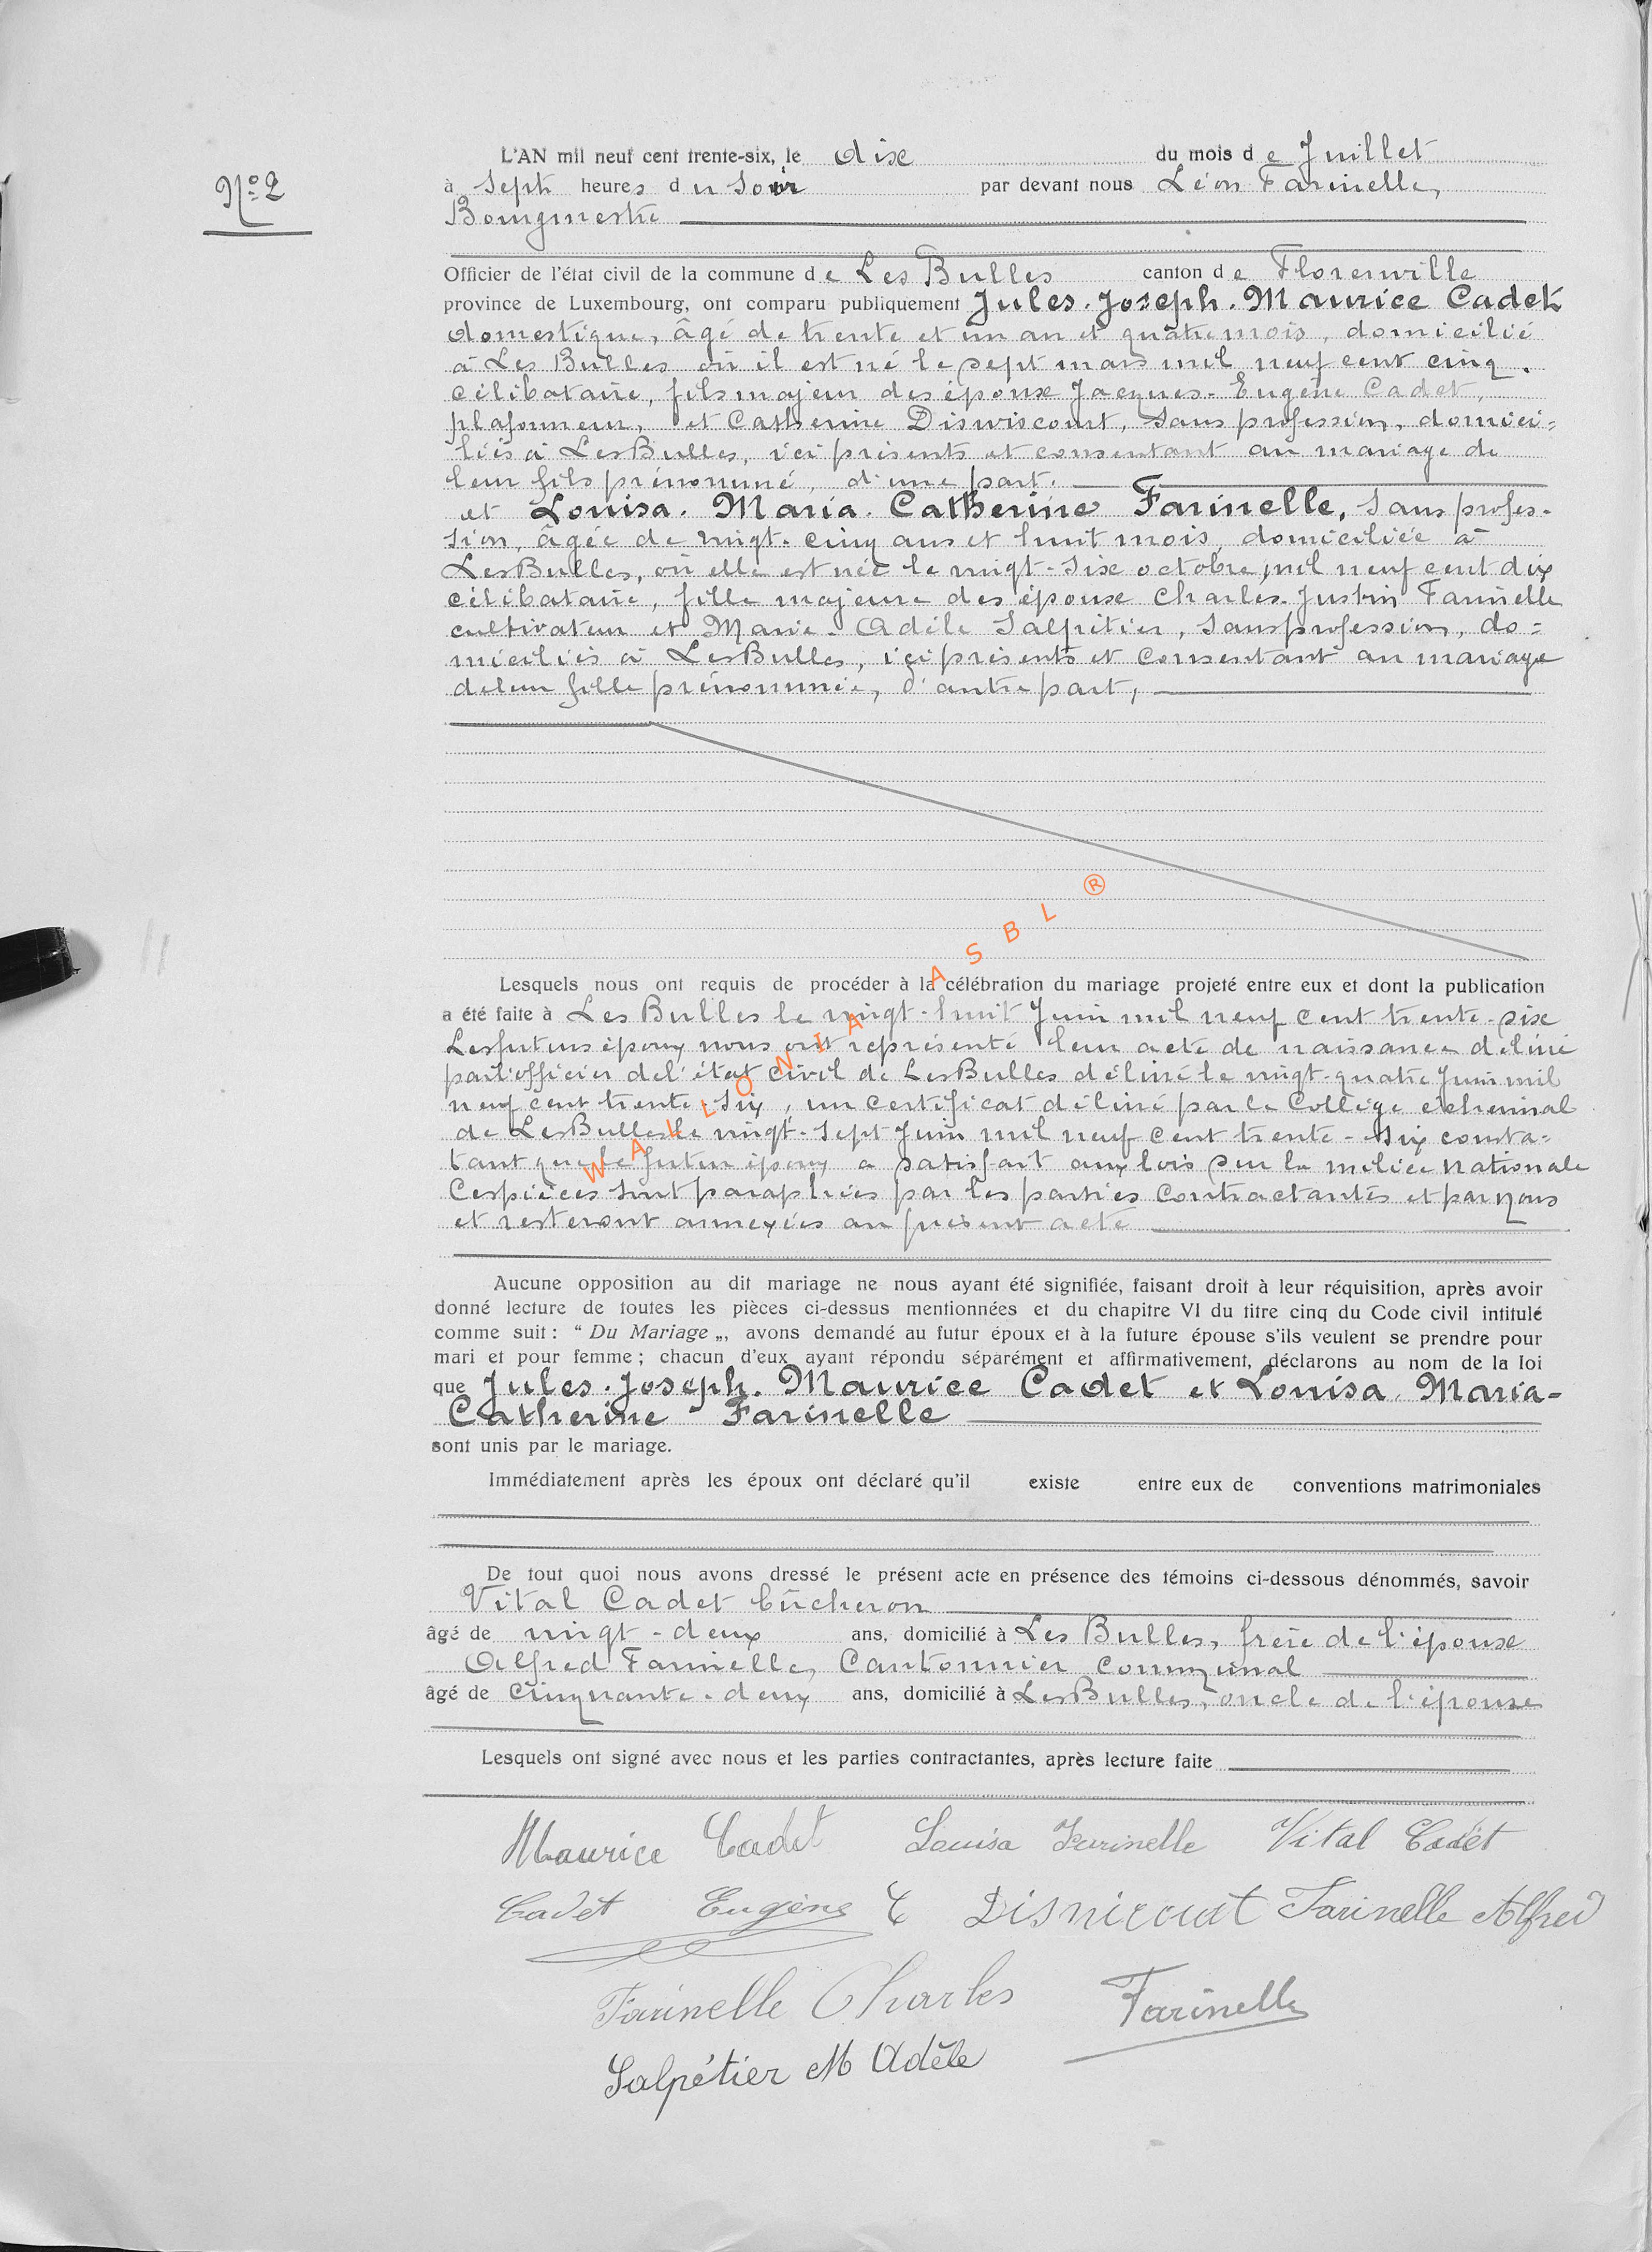 N° 2
L'AN mil neuf cent trente-six, le dix du mois de Juillet
à Sept heures du soir par devant nous Léon Farinelle,
Bourgmestre
Officier de l'état civil de la commune de Les Bulles canton de Florenville
province de Luxembourg, ont comparu publiquement Jules-Joseph-Maurice Cadet
domestique, âgé de trente et un an et quatre mois, domicilié
à Les Bulles où il est né le sept mars mil neuf cent cinq.
célibataire, fils majeur des époux Jacques-Eugène Cadet,
plafonneur, et Catherine Disviscourt, sans profession, domici=
liés à Les Bulles, ici présents et consentant au mariage de
leur fils prénommé, d'une part.
et Louisa-Maria-Catherine Farinelle, Sans profes-
sion, âgée de vingt-cinq ans et huit mois, domiciliée à
Les Bulles, où elle est née le vingt-six octobre mil neuf cent dix
célibataire, fille majeure des époux Charles-Justin Farinelle
cultivateur et Marie-Adèle Salpétier, Sans profession, do=
miciliés à Les Bulles, ici présents et consentant au mariage
de leur fille prénommée, d'autre part,
Lesquels nous ont requis de procéder à la célébration du mariage projeté entre eux et dont la publication
a été faite à Les Bulles le vingt-huit Juin mil neuf cent trente-six
Les futurs époux nous ont représenté leur acte de naissance délivré
par l'officier de l'état civil de Les Bulles délivré le vingt-quatre Juin mil
neuf cent trente-six, un certificat délivré par le Collège échevinal
de Les Bulles le vingt-sept Juin mil neuf cent trente-six consta=
tant que le futur époux a satisfait aux lois sur la milice nationale
Ces pièces sont paraphées par les parties contractantes et par nous
et resteront annexées au présent acte
Aucune opposition au dit mariage ne nous ayant été signifiée, faisant droit à leur réquisition, après avoir
donné lecture de toutes les pièces ci-dessus mentionnées et du chapitre VI du titre cinq du Code civil intitulé
comme suit : “ Du Mariage „, avons demandé au futur époux et à la future épouse s'ils veulent se prendre pour
mari et pour femme ; chacun d'eux ayant répondu séparément et affirmativement, déclarons au nom de la loi
que Jules-Joseph-Maurice Cadet et Louisa-Maria-
Catherine Farinelle
sont unis par le mariage.
Immédiatement après les époux ont déclaré qu'il existe entre eux de conventions matrimoniales
De tout quoi nous avons dressé le présent acte en présence des témoins ci-dessous dénommés, savoir
Vital Cadet bûcheron
âgé de vingt-deux ans, domicilié à Les Bulles, frère de l'époux
Alfred Farinelle, Cantonnier communal
âgé de cinquante-deux ans, domicilié à Les Bulles, oncle de l'épouse
Lesquels ont signé avec nous et les parties contractantes, après lecture faite
Maurice Cadet Louisa Farinelle Vital Cadet
Cadet Eugène C Disvicourt Farinelle Alfred
Farinelle Charles Farinelle
Salpétier M Adèle
WALLONIA ASBL ®